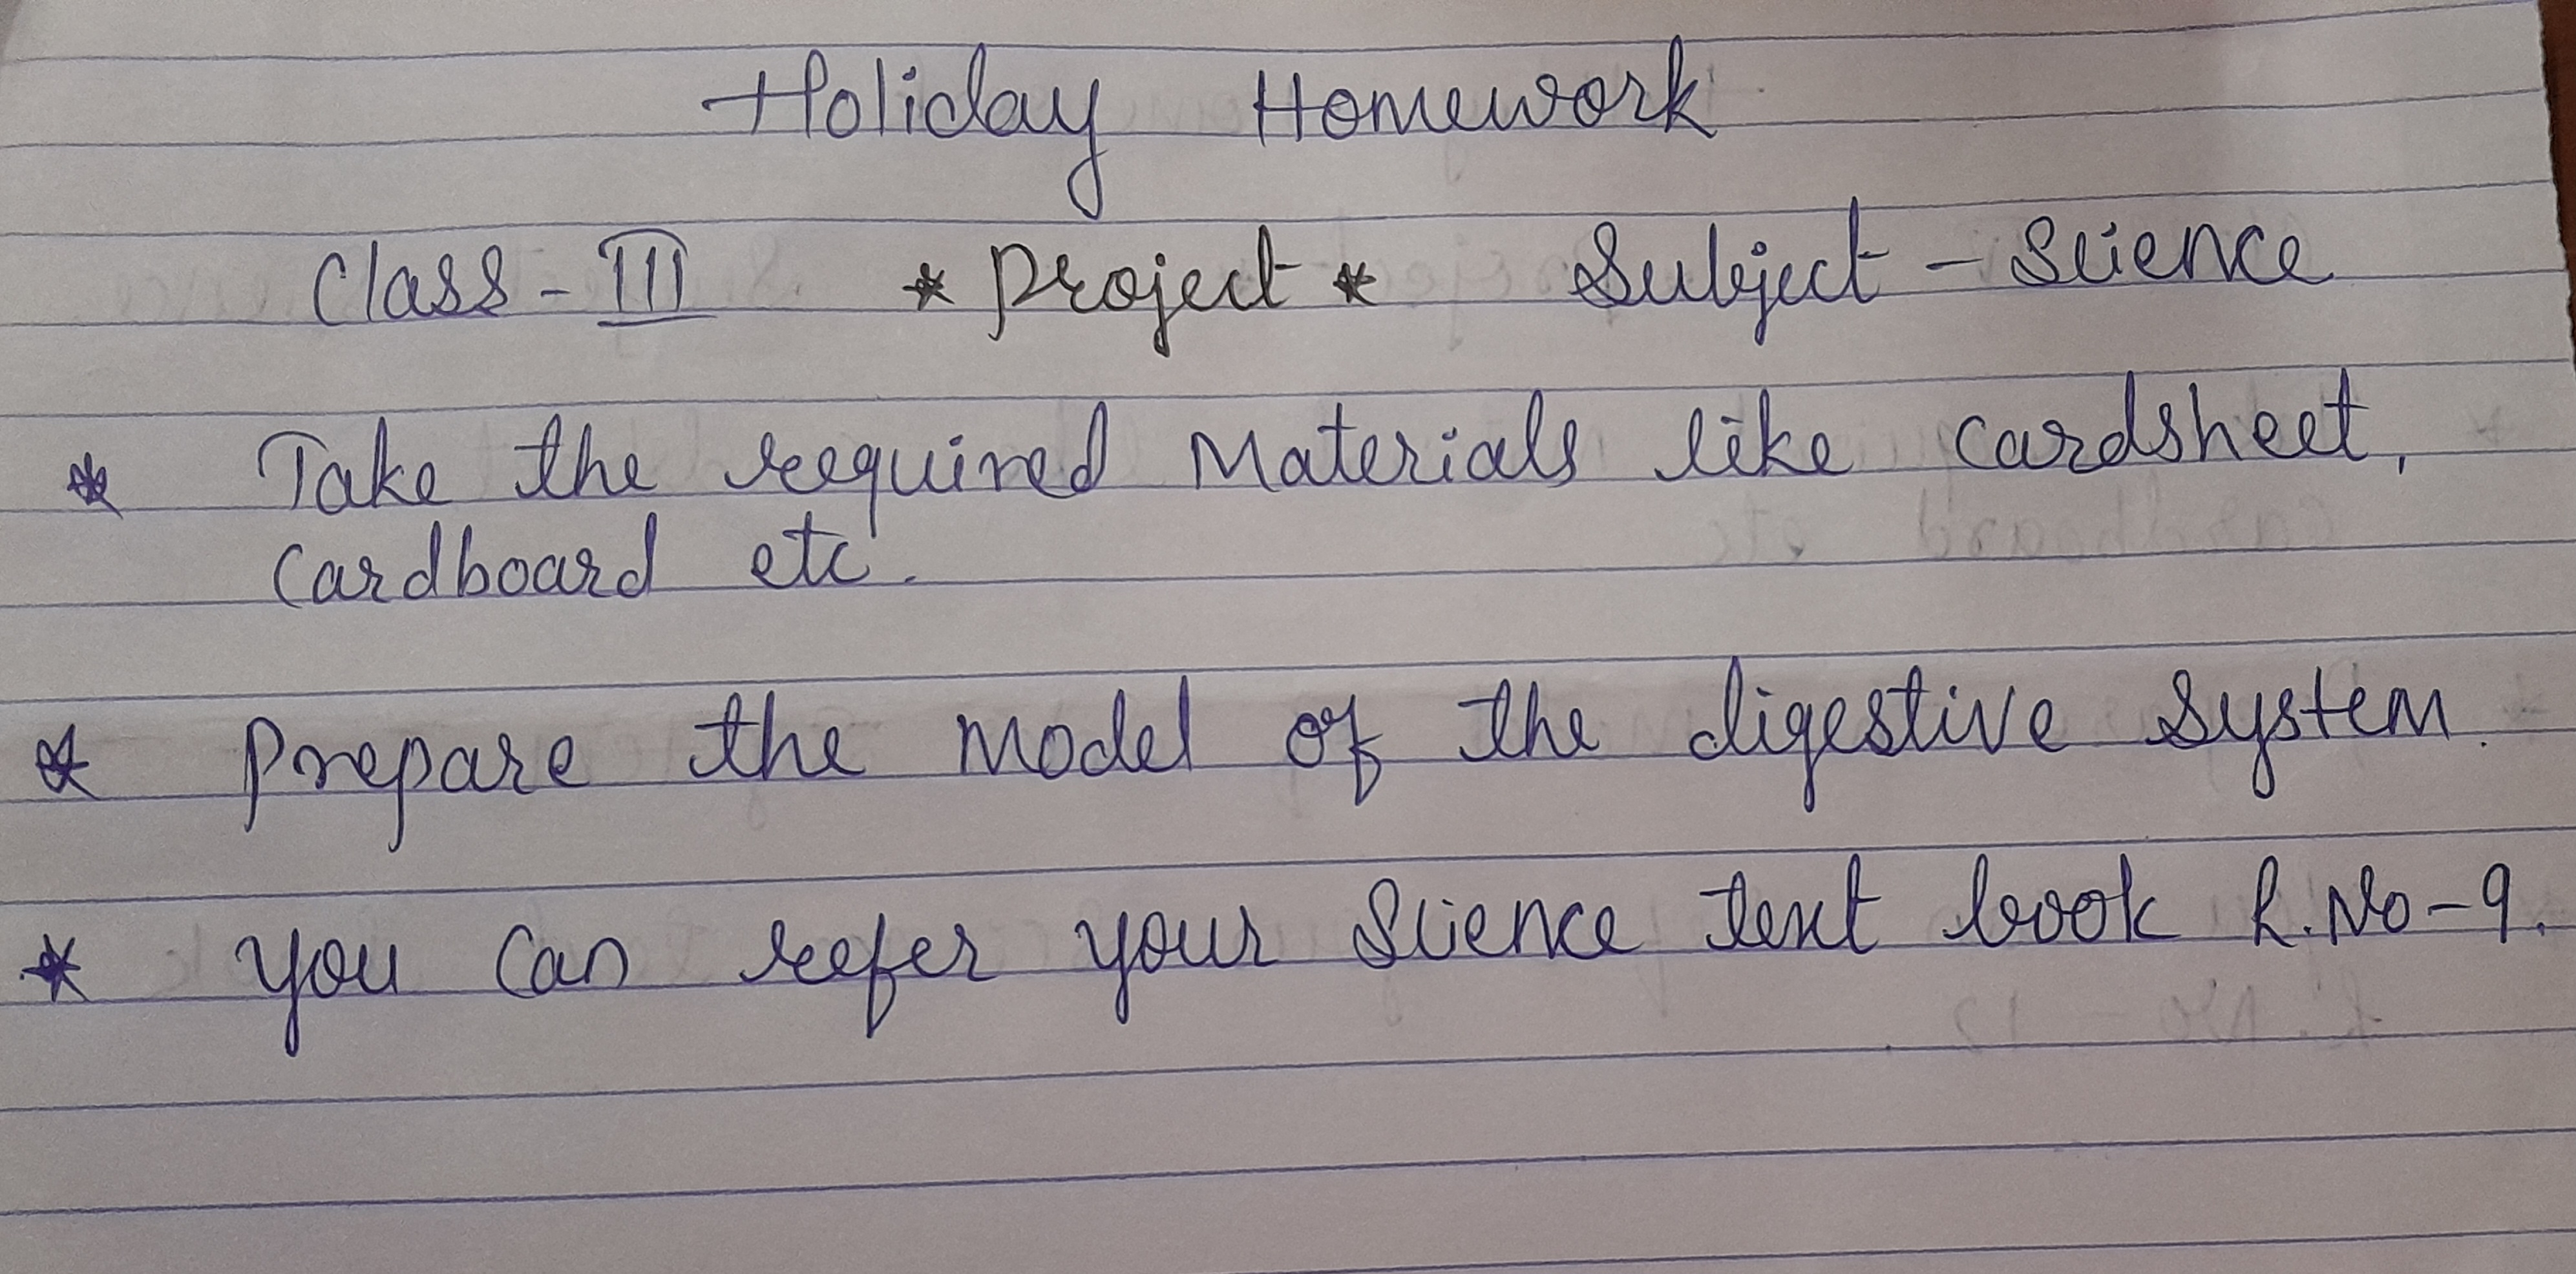 Holiday Homework
Class - III * Project * Subject - Science
* Take the required Materials like cardsheet,
Cardboard etc.
* Prepare the Model of the digestive System.
* You Can refer your Science text book L.No-9.